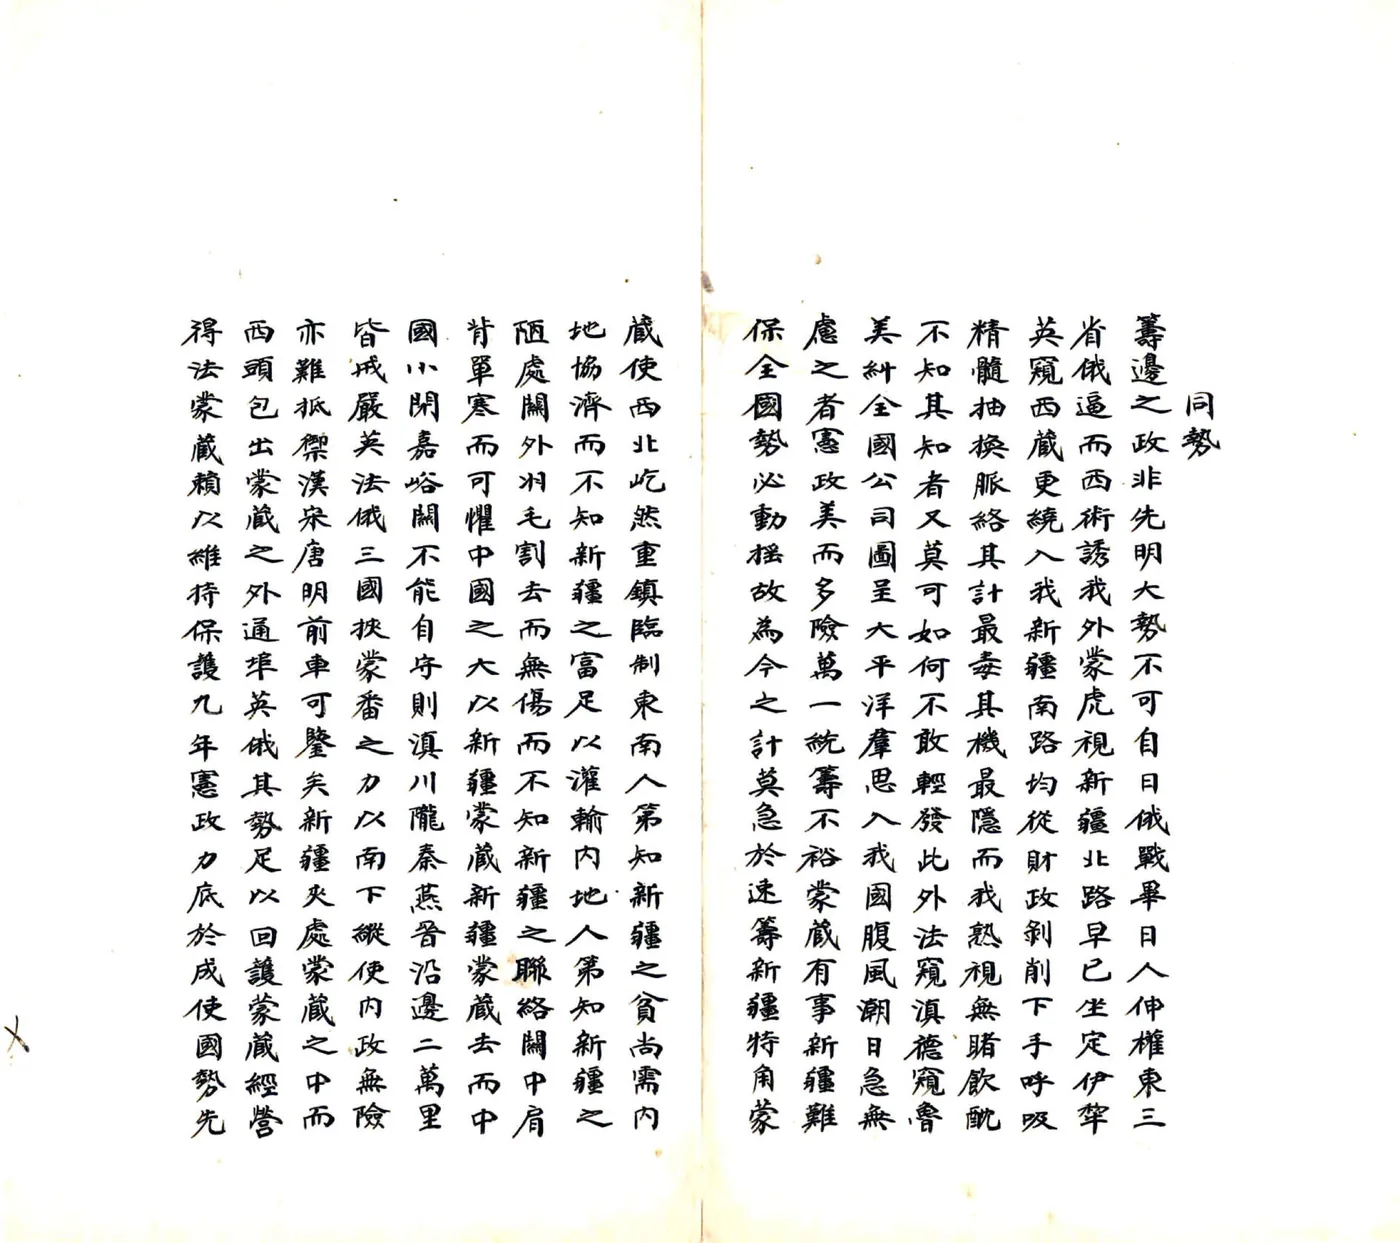 同勢
籌邊之政非先明大勢不可自日俄戰畢日人伸權東三
省俄逼而西術誘我外蒙虎視新疆北路早已坐定伊犂
英窺西藏更繞入我新疆南路均從財政剝削下手呼吸
精髓抽換脈絡其計最毒其機最隱而我熟視無睹飲酖
不知其知者又莫可如何不敢輕發此外法窺滇德窺魯
美糾全國公司圖呈大平洋羣思入我國腹風潮日急無
慮之者憲政美而多險萬一統籌不裕蒙藏有事新疆難
保全國勢必動搖故為今之計莫急於速籌新疆特角蒙
藏使西北屹然重鎮臨制東南人第知新疆之貧尚需内
地協濟而不知新疆之富足以灌輸内地人第知新疆之
陋處關外羽毛割去而無傷而不知新疆之聯絡關中肩
背單寒而可懼中國之大以新疆蒙藏新疆蒙藏去而中
國小閉嘉峪關不能自守則滇川隴秦燕晉沿邊二萬里
皆戒嚴英法俄三國挾蒙番之力以南下縱使内政無險
亦難抵禦漢宋唐明前車可鑒矣新疆夾處蒙藏之中而
西頭包出蒙藏之外通埠英俄其勢足以回護蒙藏經營
得法蒙藏賴以維持保護九年憲政力底於成使國勢先